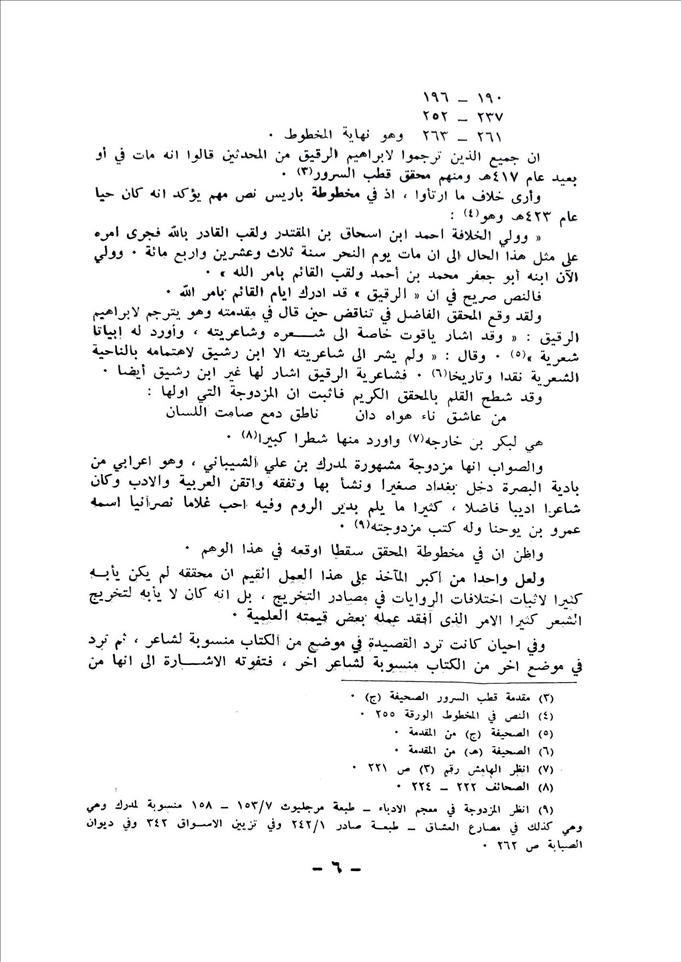 ١٩٠ ــ ١٩٦
٢٣٧ ــ ٢٥٢
٢٦١ ــ ٢٦٣ وهو نهاية المخطوط ٠
ان جميع الذين ترجموا لابراهيم الرقيق من المحدثين قالوا انه مات في أو
بعيد عام ٤١٧هـ ومنهم محقق قطب السرور(٣) ٠
وأرى خلاف ما ارتأوا ، اذ في مخطوطة باريس نص مهم يؤكد انه كان حيا
عام ٤٢٣هـ وهو(٤) :
« وولي الخلافة احمد ابن اسحاق بن المقتدر ولقب القادر بالله فجرى امره
على مثل هذا الحال الى ان مات يوم النحر سنة ثلاث وعشرين واربع مائة ٠ وولي
الآن ابنه أبو جعفر محمد بن أحمد ولقب القائم بامر الله » ٠
فالنص صريح في ان « الرقيق » قد ادرك ايام القائم بامر الله ٠
ولقد وقع المحقق الفاضل في تناقض حين قال في مقدمته وهو يترجم لابراهيم
الرقيق : « وقد اشار ياقوت خاصة الى شـــعره وشاعريته ، وأورد له ابياتا
شعرية »(٥) ٠ وقال : « ولم يشر الى شاعريته الا ابن رشيق لاهتمامه بالناحية
الشعرية نقدا وتاريخا(٦) ٠ فشاعرية الرقيق اشار لها غير ابن رشيق أيضا ٠
وقد شطح القلم بالمحقق الكريم فاثبت ان المزدوجة التي اولها :
من عاشق ناء هواه دان ناطق دمع صامت اللسان
هي لبكر بن خارجه(٧) واورد منها شطرا كبيرا(٨) ٠
والصواب انها مزدوجة مشهورة لمدرك بن علي الشيباني ، وهو اعرابي من
بادية البصرة دخل بغداد صغيرا ونشأ بها وتفقه واتقن العربية والادب وكان
شاعرا اديبا فاضلا ، كثيرا ما يلم بدير الروم وفيه احب غلاما نصرانيا اسمه
عمرو بن يوحنا وله كتب مزدوجته(٩) ٠
واظن ان في مخطوطة المحقق سقطا اوقعه في هذا الوهم ٠
ولعل واحدا من أكبر المآخذ على هذا العمل القيم ان محققه لم يكن يأبـه
كثيرا لاثبات اختلافات الروايات في مصادر التخريج ، بل انه كان لا يأبه لتخريج
الشعر كثيرا الامر الذى أفقد عمله بعض قيمته العلمية ٠
وفي احيان كانت ترد القصيدة في موضع من الكتاب منسوبة لشاعر ، ثم ترد
في موضع اخر من الكتاب منسوبة لشاعر اخر ، فتفوته الاشـــارة الى انها من
(٣) مقدمة قطب السرور الصحيفة (ج) ٠
(٤) النص في المخطوط الورقة ٢٥٥ ٠
(٥) الصحيفة (ج) من المقدمة ٠
(٦) الصحيفة (هـ) من المقدمة ٠
(٧) انظر الهامش رقم (٣) ص ٢٢١ ٠
(٨) الصحائف ٢٢٢ ــ ٢٢٤ ٠
(٩) انظر المزدوجة في معجم الادباء ــ طبعة مرجليوث ١٥٣/٧ ــ ١٥٨ منسوبة لمدرك وهي
وهي كذلك في مصارع العشاق ــ طبعـة صادر ٢٤٢/١ وفي تزيين الاسـواق ٣٤٢ وفي ديوان
الصبابة ص ٢٦٢ ٠
ــ ٦ ــ